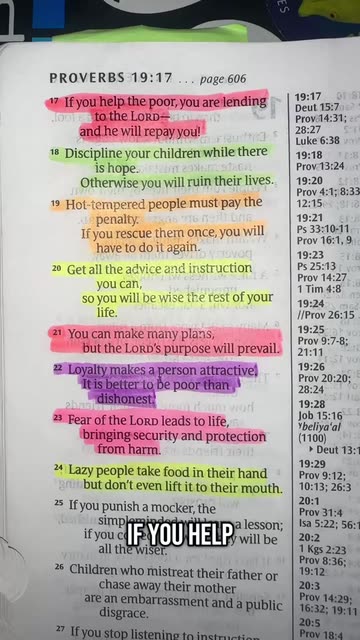 PROVERBS 19:17 ... page 606
17 If you help the poor, you are lending
to the LORD—
and he will repay you!
18 Discipline your children while there
is hope.
Otherwise you will ruin their lives.
19 Hot-tempered people must pay the
penalty.
If you rescue them once, you will
have to do it again.
20 Get all the advice and instruction
you can,
so you will be wise the rest of your
life.
21 You can make many plans,
but the LORD's purpose will prevail.
22 Loyalty makes a person attractive.
It is better to be poor than
dishonest.
23 Fear of the LORD leads to life,
bringing security and protection
from harm.
24 Lazy people take food in their hand
but don't even lift it to their mouth.
25 If you punish a mocker, the
lesson;
if you will be
all the wiser.
IF YOU HELP
26 Children who mistreat their father or
chase away their mother
are an embarrassment and a public
disgrace.
27 If you stop listening to instruction
19:17
Deut 15:7
Prov 14:31;
28:27
Luke 6:38
19:18
Prov 13:24
19:20
Prov 4:1; 8:33
12:15
19:21
Ps 33:10-11
Prov 16:1, 9
19:23
Ps 25:13
Prov 14:27
1 Tim 4:8
19:24
//Prov 26:15
19:25
Prov 9:7-8;
21:11
19:26
Prov 20:20;
28:24
19:28
Job 15:16
beliya'al
(1100)
Deut 13:1
19:29
Prov 9:12;
10:13; 26:3
20:1
Prov 31:4
Isa 5:22; 56:1
20:2
1 Kgs 2:23
Prov 8:36;
19:12
20:3
Prov 14:29;
16:32; 19:11
20:5
Prov 18:4